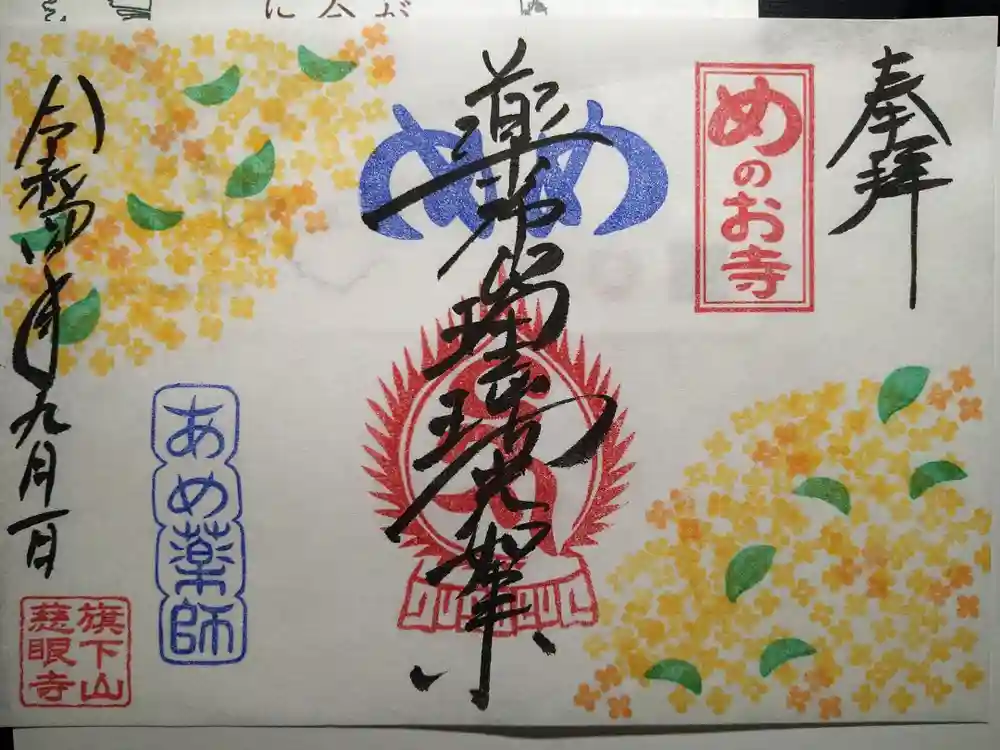 奉拝
めのお寺
めめ
藥師瑠璃光如来
あめ薬師
令和四年九月一日
旗下山
慈眼寺